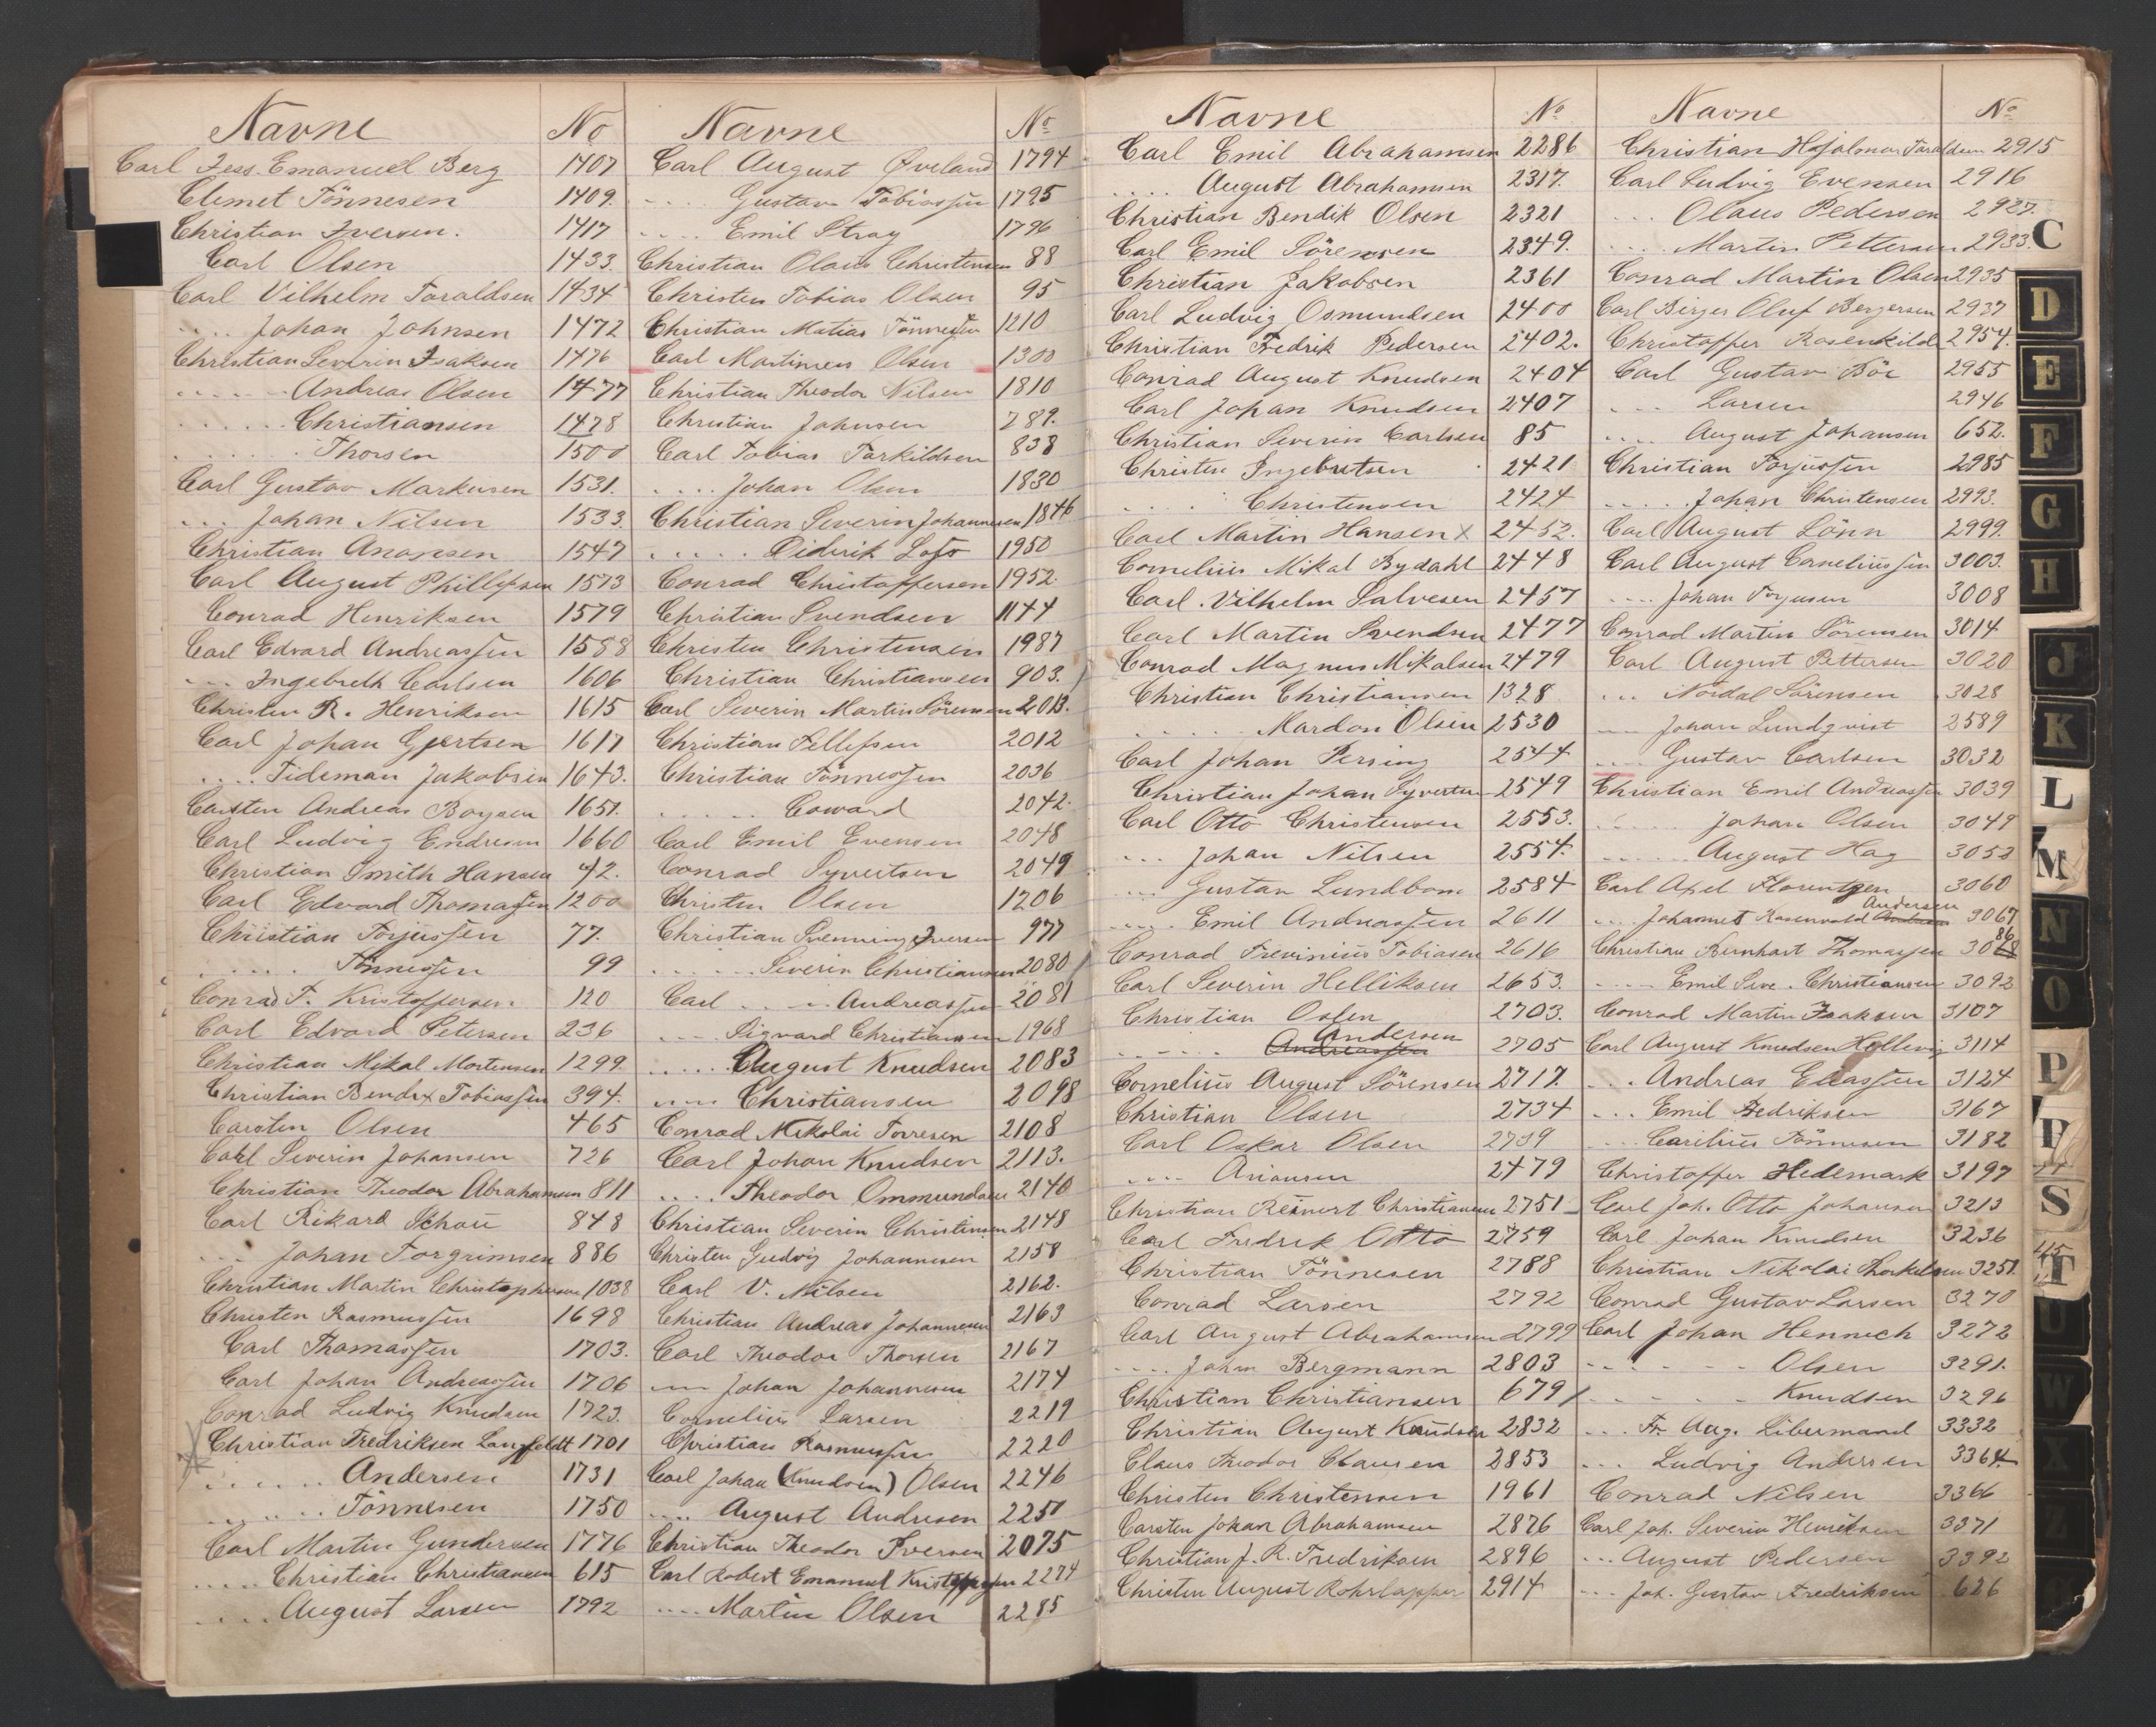 Navne No
Carl Jess. Emanuel Berg 1407
Clemet Tönnesen 1409.
Christian Iversen. 1417
Carl Olsen 1433.
Carl Vilhelm Taraldsen 1434
.... Johan Johnsen 1472
Christian Severin Isaksen 1476
..... Andreas Olsen 1477
...... Christiansen 1478
...... Thorsen 1500
Carl Gustav Markusen 1531.
... Johan Nilsen 1533.
Christian Anansen 1547
Carl August Phillipsen 1573
Conrad Henriksen 1579
Carl Edvard Andreassen 1588
... Ingebreth Carlsen 1606
Christen R. Henriksen 1615
Carl Johan Gjertsen 1617
.... Tideman Jakobsen 1643.
Carsten Andreas Boysen 1651.
Carl Ludvig Endresen 1660
Christian Smith Hansen 42.
Carl Edvard Thomassen 1200
Christian Torjussen 77.
..... Tönnessen 99
Conrad T. Kristoffersen 120
Carl Edvard Petersen 236
Christian Mikal Mortensen 1299.
Christian Bendix Tobiassen 394.
Carsten Olsen 465
Carl Severin Johansen 726
Christian Theodor Abrahamsen 811
Carl Rikard Schou 848
... Johan Torgrimsen 886
Christian Martin Christophersen 1038
Christen Rasmussen 1698
Carl Thomassen 1703.
Carl Johan Andreassen 1706
Conrad Ludvig Knudsen 1723.
Christian Fredriksen Langfeldt 1701
...... Andersen 1731
...... Tönnesen 1750
Carl Martin Gundersen 1776
.... Christian Christiansen 615
.... August Larsen 1792
Navne No
Carl August Øveland 1794
.... Gustav Tobiassen 1795
.... Emil Stray 1796
Christian Olaus Christensen 88
Christen Tobias Olsen 95
Christian Matias Tönnessen 1210
Carl Martinius Olsen 1300
Christian Theodor Nilsen 1810
Christian Johnsen 289.
Carl Tobias Torkildsen 838
.... Johan Olsen 1830
Christian Severin Johannesen 1846
..... Diderik Lofs 1950
Conrad Christoffersen 1952.
Christian Svendsen 1144
Christen Christensen 1987
Christian Christiansen 903.
Carl Severin Martin Sörensen 2013.
Christian Tellefsen 2012
Christian Tönnessen 2036
..... Coward 2042.
Carl Emil Evensen 2048
Conrad Syvertsen 2049
Christen Olsen 1206
Christian Svenning Iversen 977
..... Severin Christiansen 2080
Carl .... Andreassen 2081
.... Sigvard Christiansen 1968
..... August Knudsen 2083
.... Christiansen 2098
Conrad Nikolai Torresen 2108
Carl Johan Knudsen 2113.
.... Theodor Ommundsen 2140
Christian Severin Christensen 2148
Christen Ludvig Johannesen 2158
Carl V. Nilsen 2162.
Christian Andreas Johannesen 2163
Carl Theodor Thorsen 2167
.... Johan Johannesen 2174
Cornelius Larsen 2219
Christian Rasmussen 2220
Carl Johan (Knudsen) Olsen 2246
.... August Andresen 2250
Christian Theodor Iversen 2075
Carl Robert Emanuel Kristoffersen 2274
.... Martin Olsen 2285
Navne No
Carl Emil Abrahamsen 2286
.... August Abrahamsen 2317.
Christian Bendik Olsen 2321
Carl Emil Sörensen 2349.
Christian Jakobsen 2361
Carl Ludvig Osmundsen 2400
Christian Fredrik Pedersen 2402.
Conrad August Knudsen 2404
Carl Johan Knudsen 2407
Christian Severin Carlsen 85
Christen Ingebretsen 2421
.... Christensen 2424
Carl Martin Hansen x 2452.
Cornelius Mikal Bydahl 2448
Carl. Vilhelm Salvesen 2457
Carl Martin Svendsen 2477
Conrad Magnus Mikalsen 2479
Christian Christiansen 1328
..... Mardon Olsen 2530
Carl Johan Persing 2544
Christian Johan Syvertsen 2549
Carl Otto Christensen 2553.
... Johan Nilsen 2554.
... Gustav Lundbom 2584
.... Emil Andreassen 2611
Conrad Trevinius Tobiasen 2616
Carl Severin Helliksen 2653.
Christian Olsen 2703.
..... Andreassen Andersen 2705
Cornelius August Sörensen 2717.
Christian Olsen 2734
Carl Oskar Olsen 2739
.... Ariansen 2479
Christian Reinert Christiansen 2751
Carl Fredrik Otto 2759
Christian Tönnesen 2788
Conrad Larsen 2792
Carl August Abrahamsen 2799
.... Johan Bergmann 2803
Christian Christiansen 679
Christian August Knudsen 2832
Claus Theodor Clausen 2853
Christen Christensen 1961
Carsten Johan Abrahamsen 2876
Christian J. R. Fredriksen 2896
Christen August Rohrlapper 2914
Navne No
Christian Hjalmar Taraldsen 2915
Carl Ludvig Evensen 2916
... Olaus Pedersen 2927.
.... Martin Pettersen 2933.
Conrad Martin Olsen 2935
Carl Birger Oluf Bergersen 2937
Christoffer Rosenkilde 2954.
Carl Gustav Böe 2955
... Larsen 2946
.... August Johansen 652.
Christian Torjussen 2985
..... Johan Christensen 2993.
Carl August Lönn 2999.
Carl August Corneliussen 3003.
.... Johan Torjusen 3008
Conrad Martin Sörensen 3014
Carl August Pettersen 3020
... Nordal Sörensen 3028
.... Johan Lundqvist 2589
.... Gustav Carlsen 3032
Christian Emil Andreassen 3039
..... Johan Olsen 3049
..... August Hag 3053
Carl Axel Florentzen 3060
.... Johannes Rosenvold Andersen 3067
Christian Bernhart Thomassen 3086
.... Emil Sive. Christiansen 3092
Conrad Martin Isaksen 3107
Carl August Knudsen Hellevig 3114
... Andreas Eliassen 3124
... Emil Fredriksen 3167
.... Carilius Tönnesen 3182
Christoffer Hedemark 3197
Carl Joh. Otto Johansen 3213
Carl Johan Knudsen 3236
Christian Nikolai Thorkelsen 3251.
Conrad Gustav Larsen 3270
Carl Johan Hennich 3272
...... Olsen 3291.
..... Knudsen 3296
... Fr. Aug. Libermand 3332
... Ludvig Andersen 3364
Conrad Nilsen 3366
Carl Joh. Severin Henriksen 3371
... August Pedersen 3392
... Joh. Gustav Fredriksen 626
C
D
E
F
G
H
J
K
L
M
N
O
P
S
T
U
W
X
Z